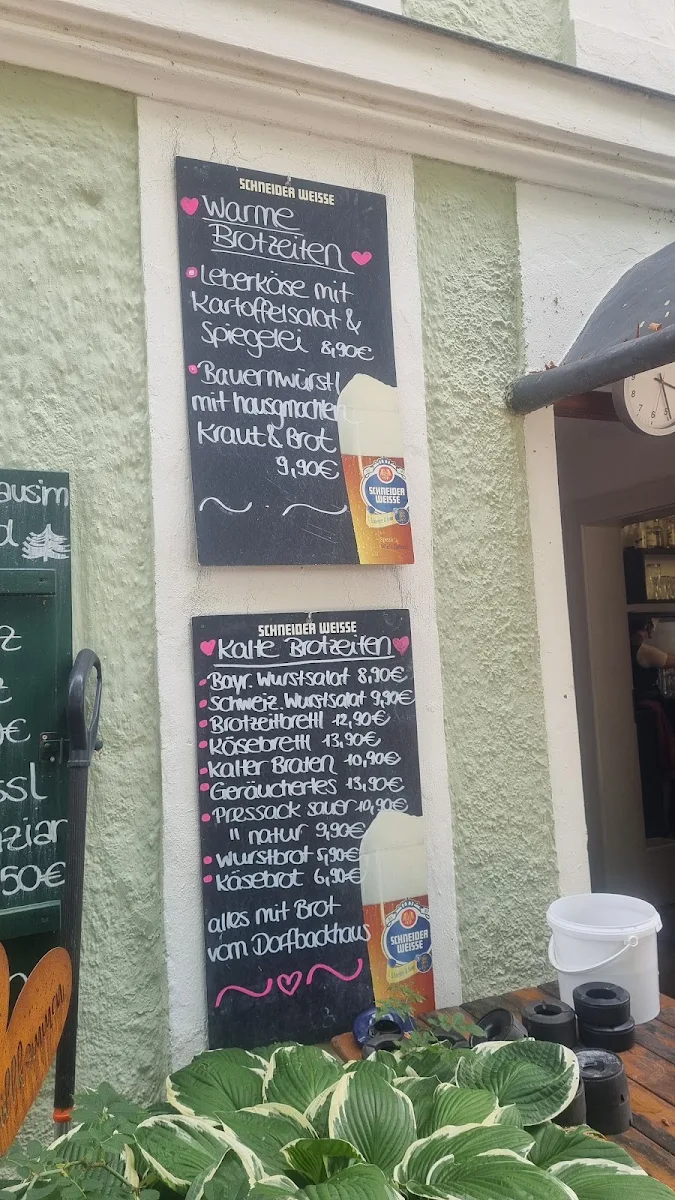 SCHNEIDER WEISSE
Warme
Brotzeiten
Leberkäse mit
Kartoffelsalat &
Spiegelei 8,90€
Bauernwürstl
mit hausgmachten
Kraut & Brot
9,90€
SCHNEIDER
WEISSE
SCHNEIDER WEISSE
Kalte Brotzeiten
Bayr. Wurstsalat 8,90€
Schweiz. Wurstsalat 9,90€
Brotzeitbrettl 12,90€
Käsebrettl 13,90€
Kalter Braten 10,90€
Geräuchertes 13,90€
Pressack sauer 10,90€
" natur 9,90€
Wurstbrot 5,90€
Käsebrot 6,90€
alles mit Brot
vom Dorfbackhaus
SCHNEIDER
WEISSE
ausim
d
z
€
ssl
zian
50€
8
7
6
5